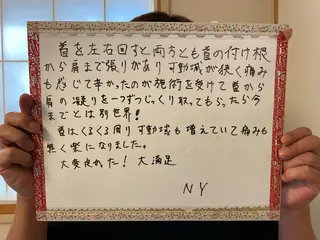 首を左右回すと両方とも首の付け根
から肩まで張りがあり可動域が狭く痛み
も感じて辛かったのが施術を受けて首から
肩の凝りを一つずつじっくり取ってもらったら今
までとは別世界!
首はくるくる回り可動域も増えていて痛みも
無く楽になりました。
大変良かった!大満足
NY